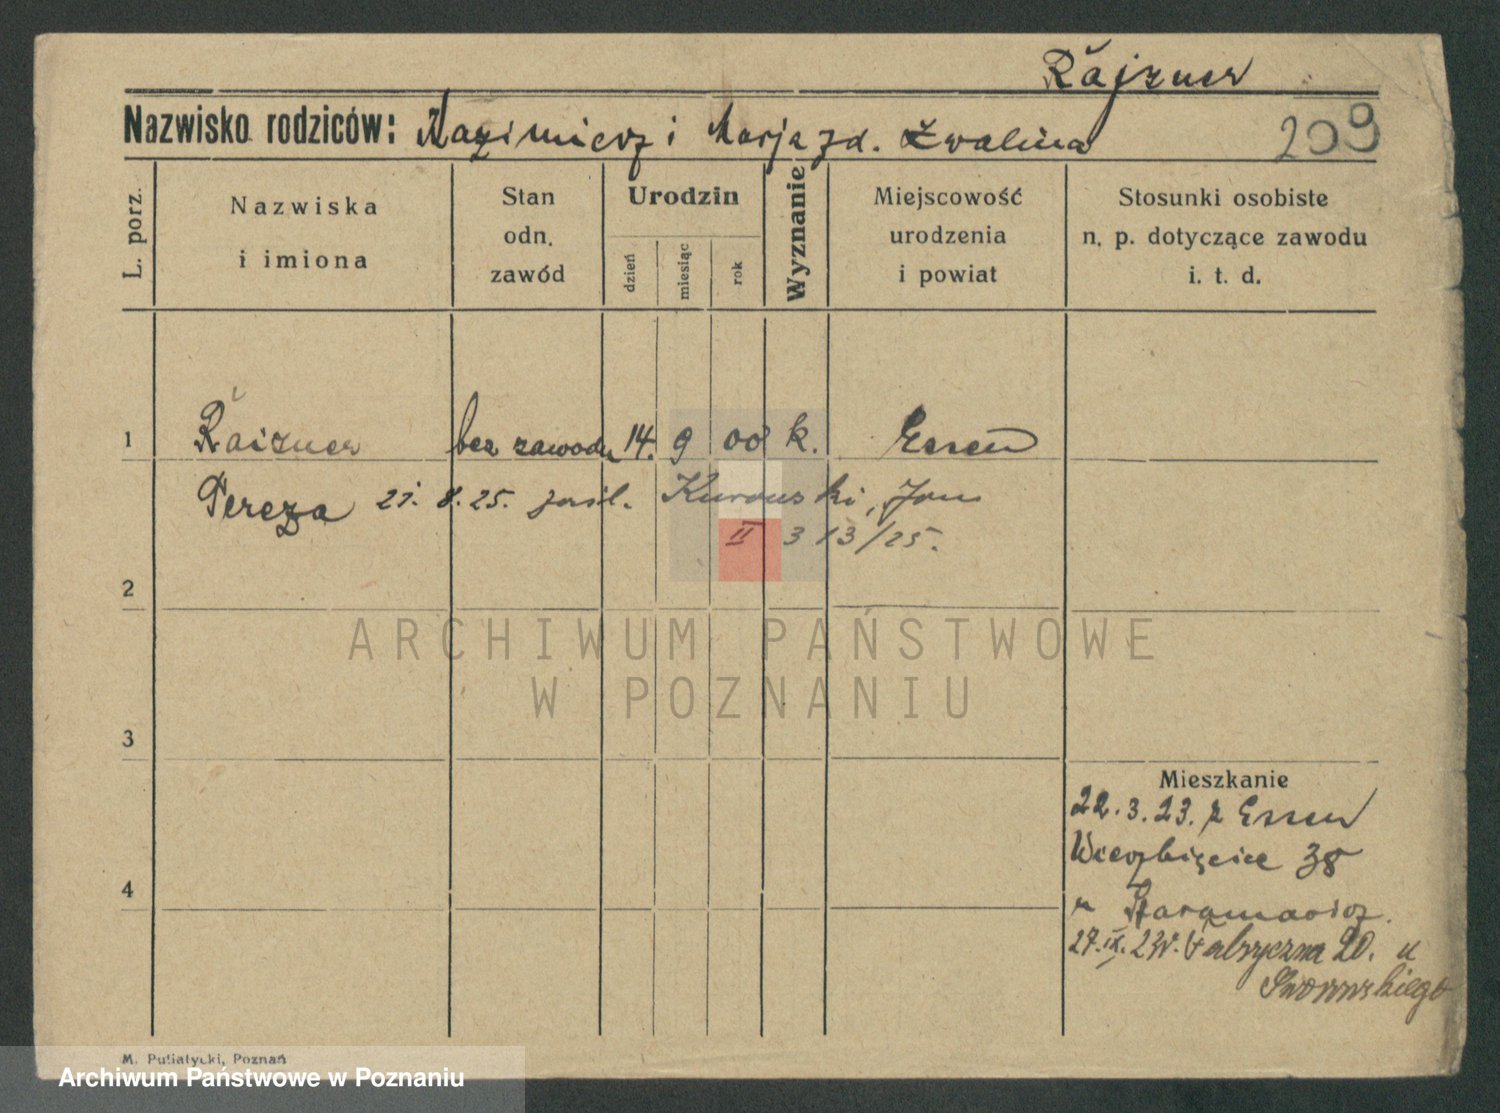 Rajzner
Nazwisko rodziców: Kazimierz i Marja zd. Zwalina
209
L. porz.
Nazwiska
i imiona
Stan
odn.
zawód
Urodzin
dzień
miesiąc
rok
Wyznanie
Miejscowość
urodzenia
i powiat
Stosunki osobiste
n. p. dotyczące zawodu
i. t. d.
1 Raizner bez zawodu 14. 9 00 k. Essen
Tereza 21. 8. 25. zaśl. Kurowski, Jan
II 313/25.
2
ARCHIWUM PAŃSTWOWE
W POZNANIU
3
Mieszkanie
22.3.23. z Essen
Wierzbięcice 38
4
27.IX.23r. Fabryczna 20. u
M. Putiatycki, Poznań
Archiwum Państwowe w Poznaniu